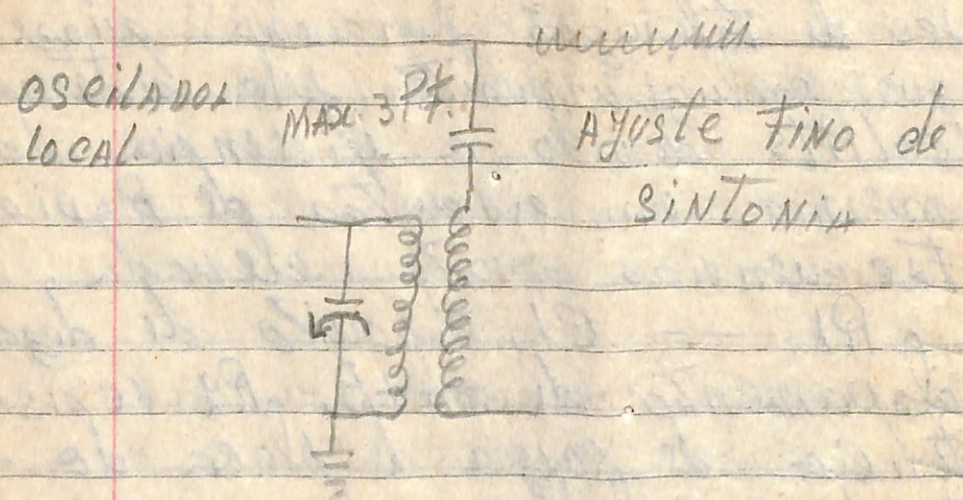 OSCILADOR
LOCAL
MAX. 3 Pf.
Ajuste fino de
SINTONIA